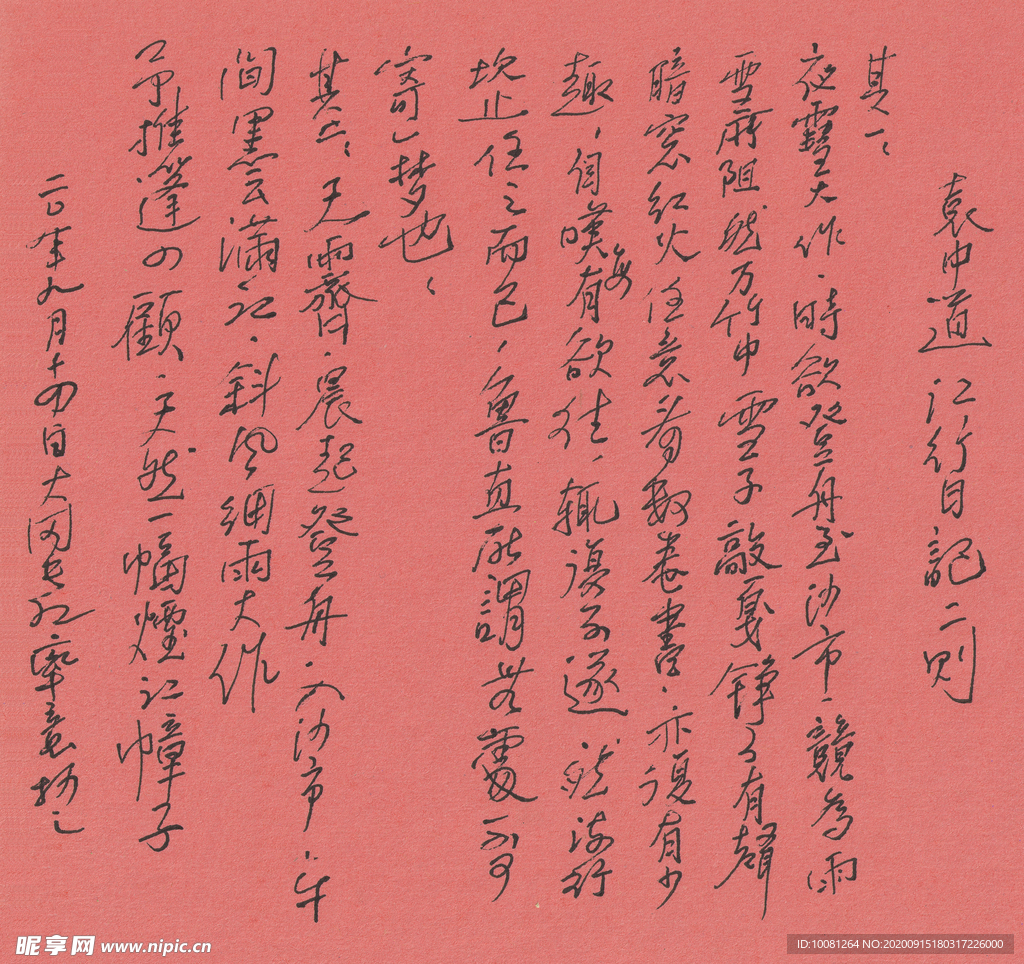 袁中道 江行日記二則
其一、
夜雪大作，時欲登舟至沙市，競為雨
雪所阻，然万竹中雪子敲戛，錚了有聲
暗窓红火，任意看数卷書，亦復有少
趣，自嘆每有欲往，輒復不遂，然流行
坎止，任之而已，魯直所謂無處不可
寄一梦也、
其二、天雨霽，晨起登舟，入沙市，午
间黑云满江，斜风细雨大作
予推篷四顧，天然一幅煙江幛子
二〇二〇年九月十四日
昵享网 www.nipic.cn
ID:10081264 NO:20200915180317226000